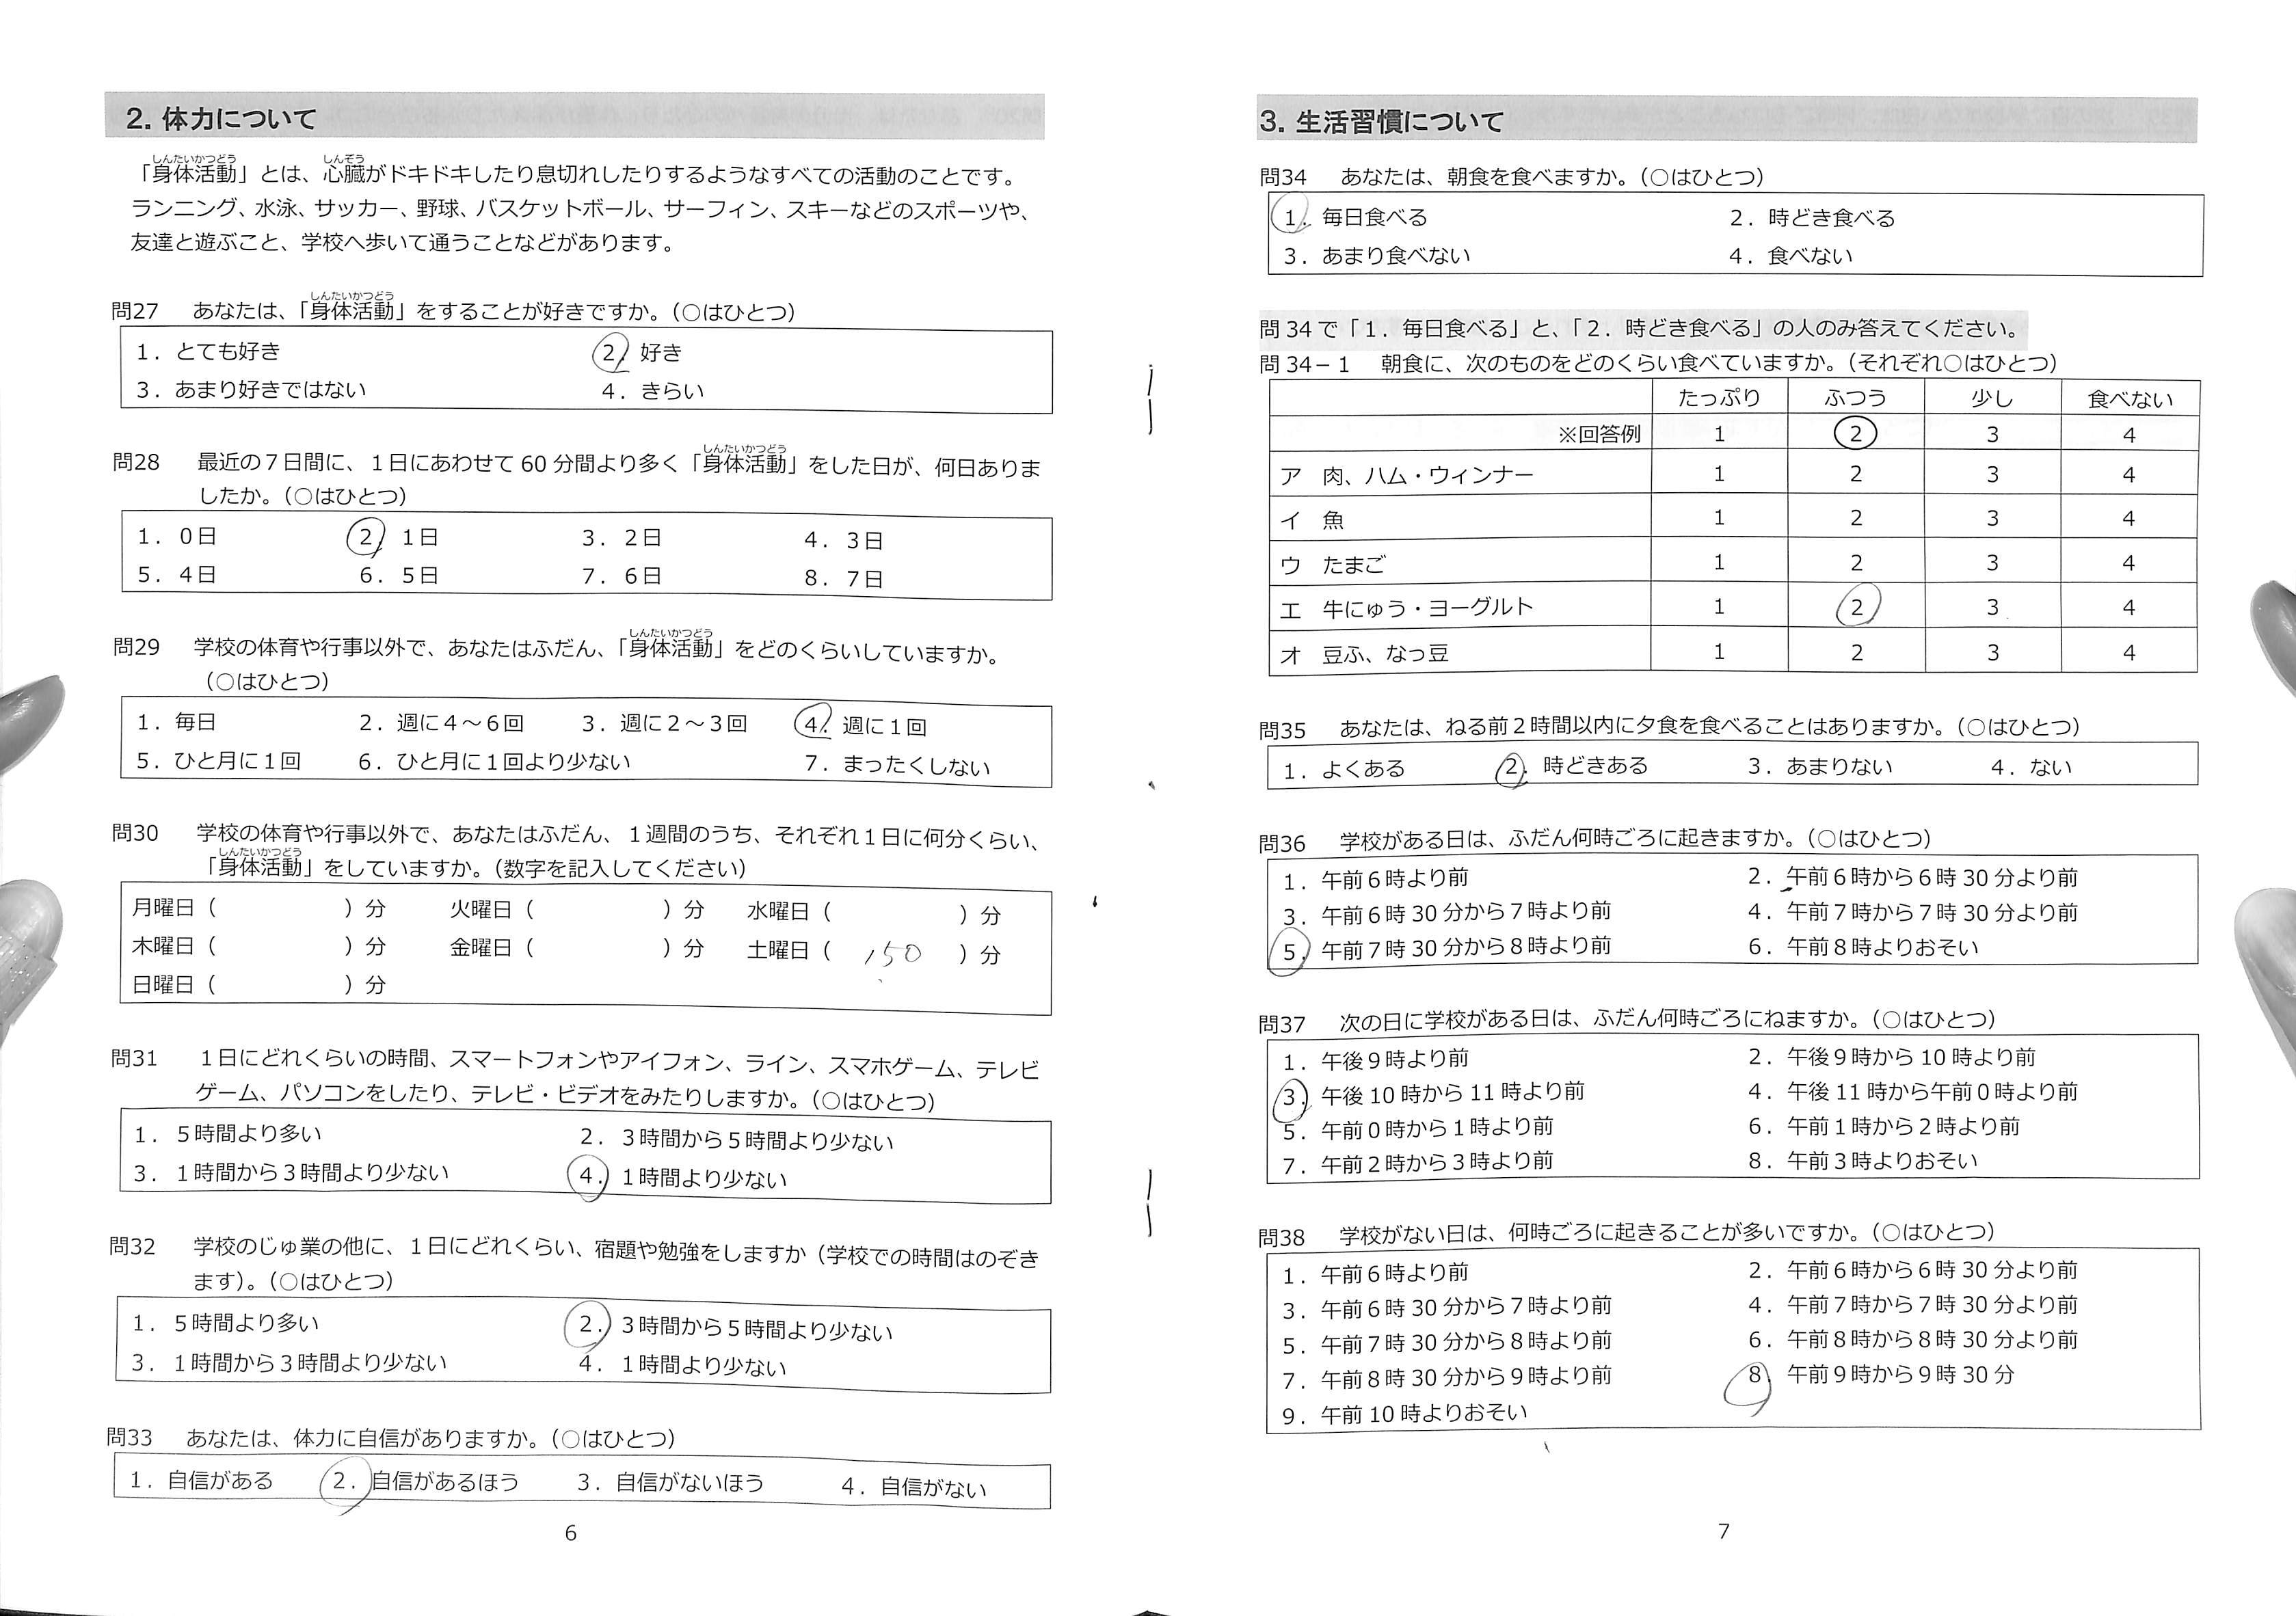 2. 体力について
「身体活動」とは、心臓がドキドキしたり息切れしたりするようなすべての活動のことです。
ランニング、水泳、サッカー、野球、バスケットボール、サーフィン、スキーなどのスポーツや、
友達と遊ぶこと、学校へ歩いて通うことなどがあります。
問27 あなたは、「身体活動」をすることが好きですか。（○はひとつ）
1. とても好き 2. 好き
3. あまり好きではない 4. きらい
問28 最近の７日間に、１日にあわせて 60 分間より多く「身体活動」をした日が、何日ありま
したか。（○はひとつ）
1. ０日 2. １日 3. ２日 4. ３日
5. ４日 6. ５日 7. ６日 8. ７日
問29 学校の体育や行事以外で、あなたはふだん、「身体活動」をどのくらいしていますか。
（○はひとつ）
1. 毎日 2. 週に４～６回 3. 週に２～３回 4. 週に１回
5. ひと月に１回 6. ひと月に１回より少ない 7. まったくしない
問30 学校の体育や行事以外で、あなたはふだん、１週間のうち、それぞれ１日に何分くらい、
「身体活動」をしていますか。（数字を記入してください）
月曜日（ ）分 火曜日（ ）分 水曜日（ ）分
木曜日（ ）分 金曜日（ ）分 土曜日（ 150 ）分
日曜日（ ）分
問31 １日にどれくらいの時間、スマートフォンやアイフォン、ライン、スマホゲーム、テレビ
ゲーム、パソコンをしたり、テレビ・ビデオをみたりしますか。（○はひとつ）
1. ５時間より多い 2. ３時間から５時間より少ない
3. １時間から３時間より少ない 4. １時間より少ない
問32 学校のじゅ業の他に、１日にどれくらい、宿題や勉強をしますか（学校での時間はのぞき
ます）。（○はひとつ）
1. ５時間より多い 2. ３時間から５時間より少ない
3. １時間から３時間より少ない 4. １時間より少ない
問33 あなたは、体力に自信がありますか。（○はひとつ）
1. 自信がある 2. 自信があるほう 3. 自信がないほう 4. 自信がない
6
3. 生活習慣について
問34 あなたは、朝食を食べますか。（○はひとつ）
1. 毎日食べる 2. 時どき食べる
3. あまり食べない 4. 食べない
問 34 で「１．毎日食べる」と、「２．時どき食べる」の人のみ答えてください。
問 34－１ 朝食に、次のものをどのくらい食べていますか。（それぞれ○はひとつ）
たっぷり ふつう 少し 食べない
※回答例 1 2 3 4
ア 肉、ハム・ウィンナー 1 2 3 4
イ 魚 1 2 3 4
ウ たまご 1 2 3 4
エ 牛にゅう・ヨーグルト 1 2 3 4
オ 豆ふ、なっ豆 1 2 3 4
問35 あなたは、ねる前２時間以内に夕食を食べることはありますか。（○はひとつ）
1. よくある 2. 時どきある 3. あまりない 4. ない
問36 学校がある日は、ふだん何時ごろに起きますか。（○はひとつ）
1. 午前６時より前 2. 午前６時から６時 30 分より前
3. 午前６時 30 分から７時より前 4. 午前７時から７時 30 分より前
5. 午前７時 30 分から８時より前 6. 午前８時よりおそい
問37 次の日に学校がある日は、ふだん何時ごろにねますか。（○はひとつ）
1. 午後９時より前 2. 午後９時から 10 時より前
3. 午後 10 時から 11 時より前 4. 午後 11 時から午前０時より前
5. 午前０時から１時より前 6. 午前１時から２時より前
7. 午前２時から３時より前 8. 午前３時よりおそい
問38 学校がない日は、何時ごろに起きることが多いですか。（○はひとつ）
1. 午前６時より前 2. 午前６時から６時 30 分より前
3. 午前６時 30 分から７時より前 4. 午前７時から７時 30 分より前
5. 午前７時 30 分から８時より前 6. 午前８時から８時 30 分より前
7. 午前８時 30 分から９時より前 8. 午前９時から９時 30 分
9. 午前 10 時よりおそい
7